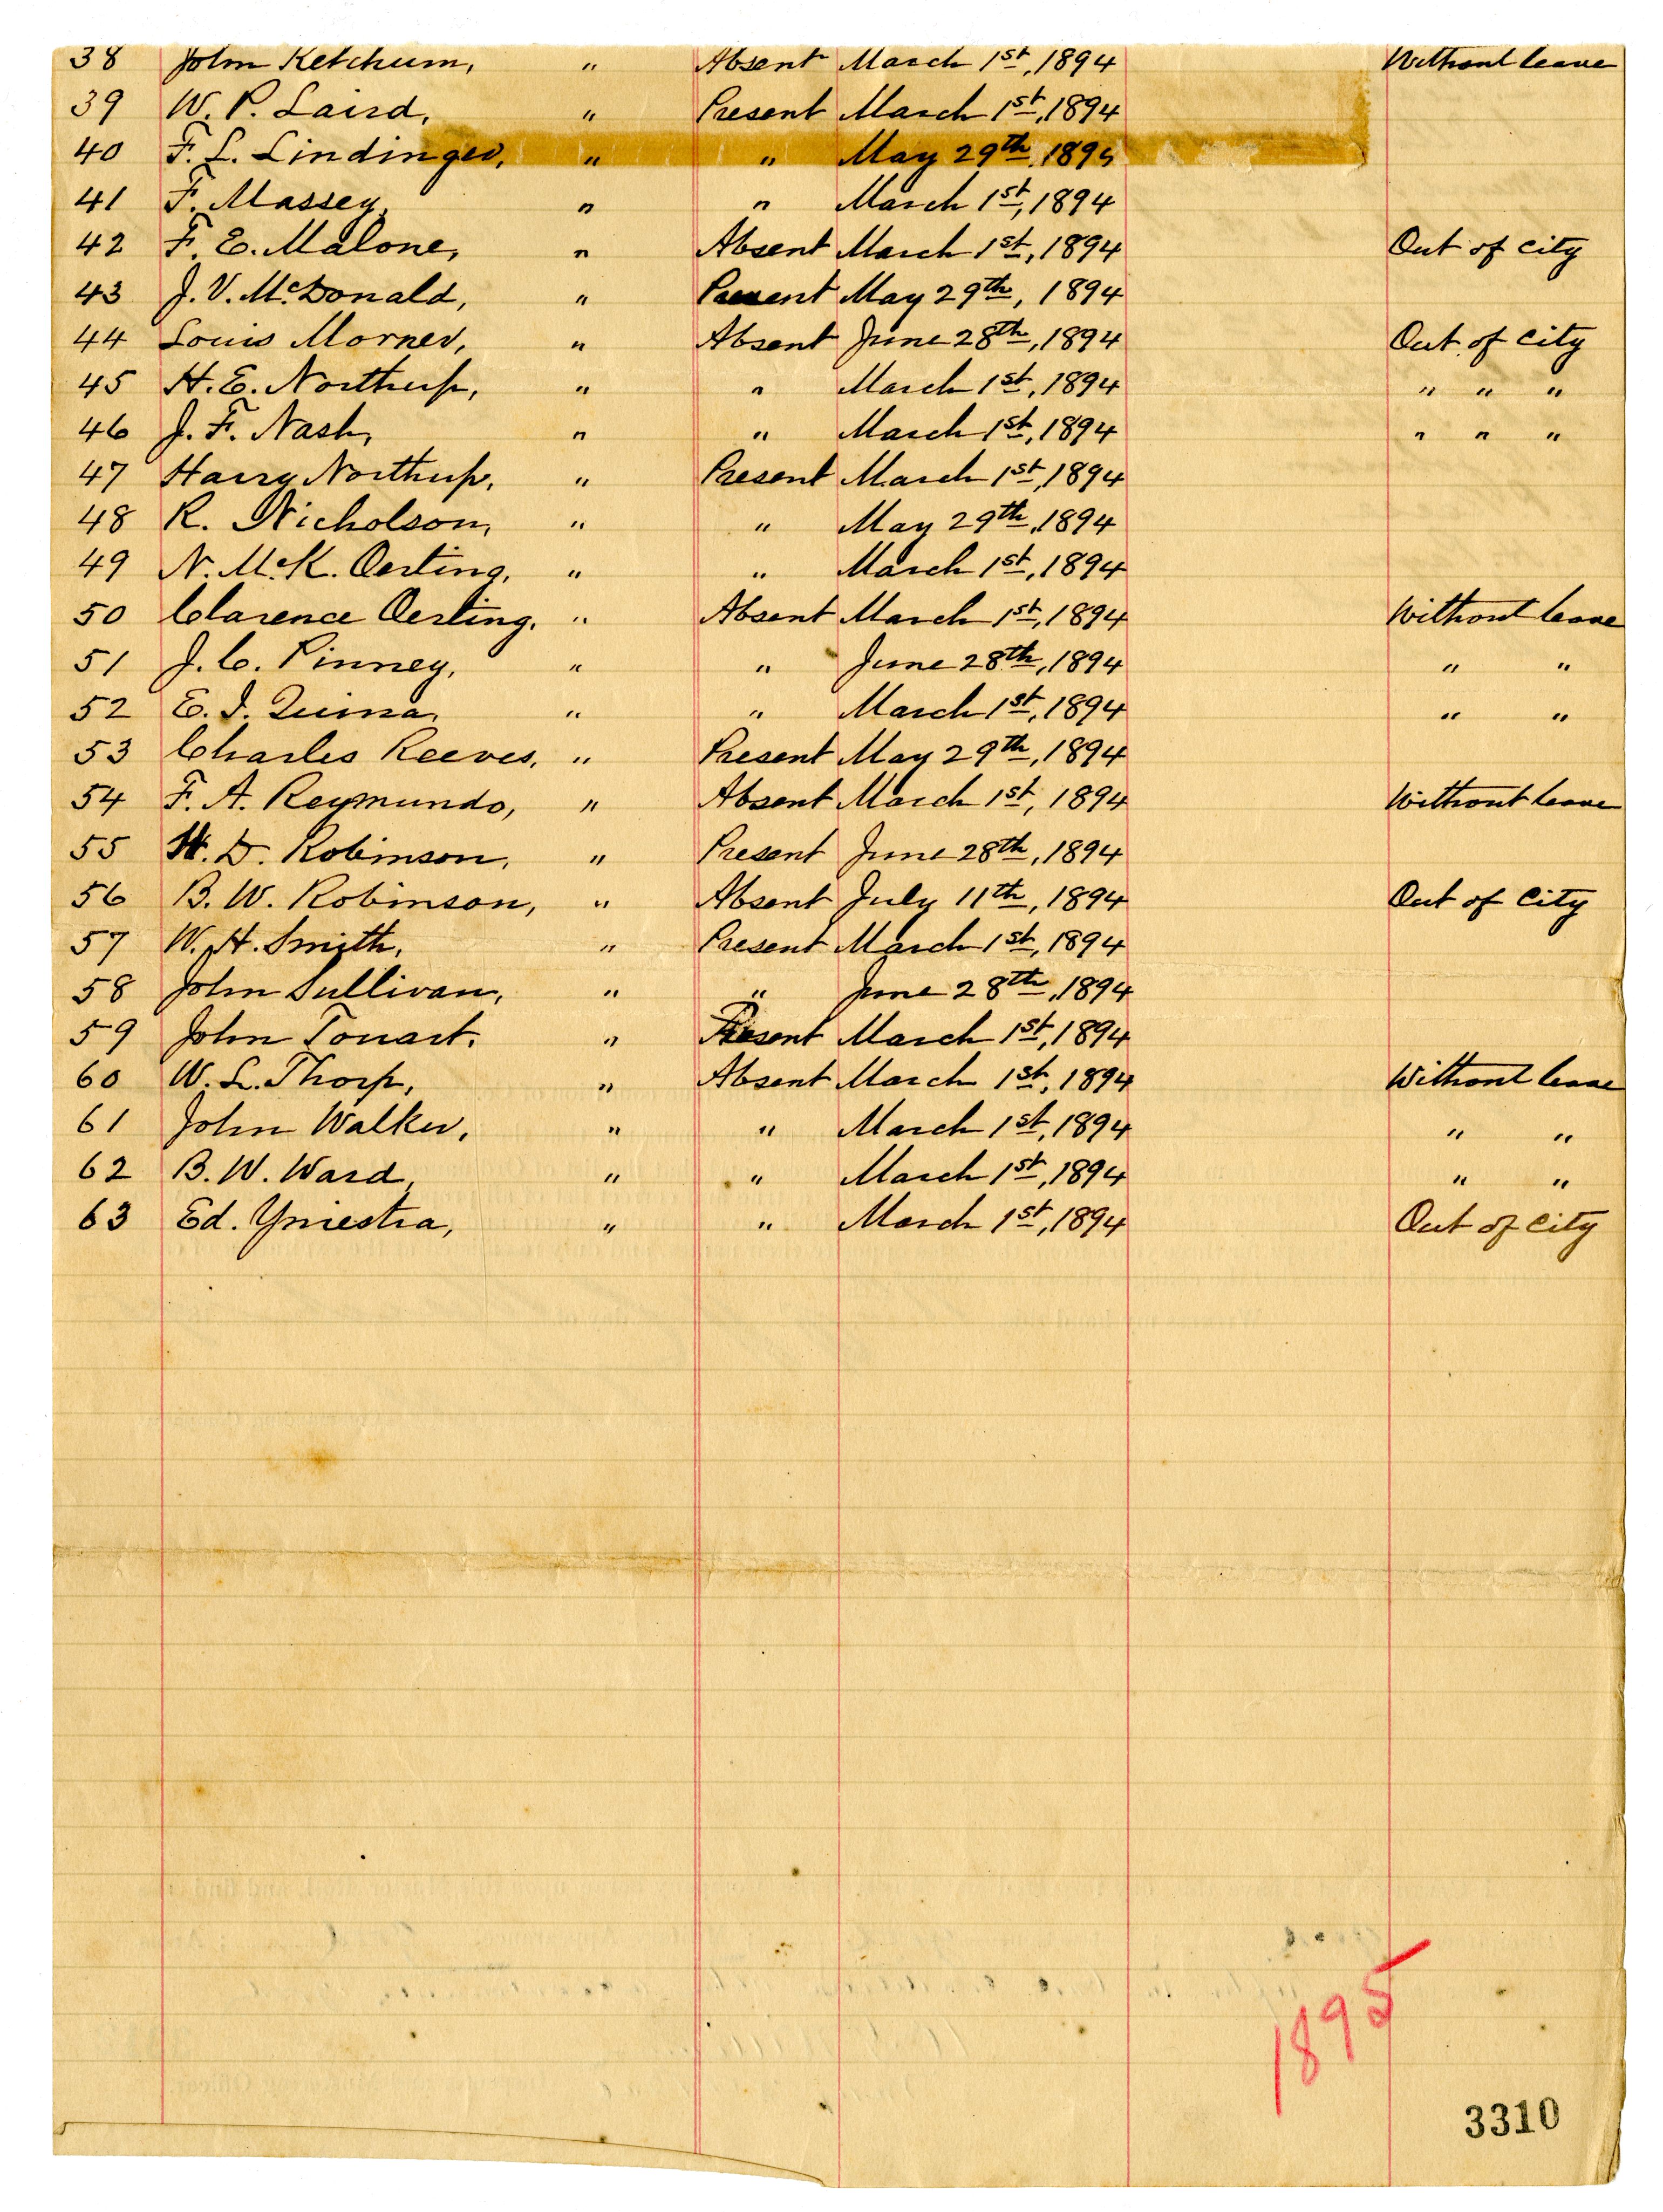 38 John Ketchum, " Absent March 1st, 1894 Without leave
39 W. P. Laird, " Present March 1st, 1894
40 F. L. Lindinger, " " May 29th, 1894
41 F. Massey, " " March 1st, 1894
42 F. E. Malone, " Absent March 1st, 1894 Out of City
43 J. V. McDonald, " Present May 29th, 1894
44 Louis Morner, " Absent June 28th, 1894 Out of City
45 H. E. Northrup, " " March 1st, 1894 " " "
46 J. F. Nash, " " March 1st, 1894 " " "
47 Harry Northrup, " Present March 1st, 1894
48 R. Nicholson, " " May 29th, 1894
49 N. McK. Oerting, " " March 1st, 1894
50 Clarence Oerting, " Absent March 1st, 1894 Without leave
51 J. C. Pinney, " " June 28th, 1894 " "
52 E. J. Quina, " " March 1st, 1894 " "
53 Charles Reeves, " Present May 29th, 1894
54 F. A. Reymundo, " Absent March 1st, 1894 Without leave
55 H. D. Robinson, " Present June 28th, 1894
56 B. W. Robinson, " Absent July 11th, 1894 Out of City
57 W. H. Smith, " Present March 1st, 1894
58 John Sullivan, " " June 28th, 1894
59 John Touart, " Present March 1st, 1894
60 W. L. Thorp, " Absent March 1st, 1894 Without leave
61 John Walker, " " March 1st, 1894 " "
62 B. W. Ward, " " March 1st, 1894 " "
63 Ed. Yniestra, " " March 1st, 1894 Out of City
1895
3310